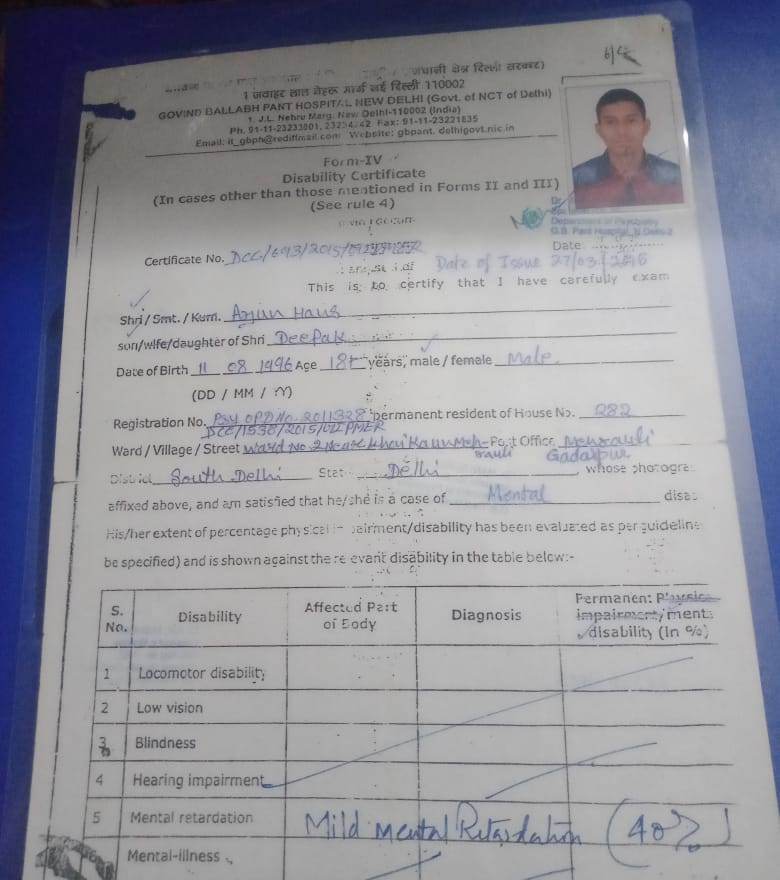 राजधानी क्षेत्र दिल्ली सरकार)
1 जवाहर लाल नेहरू मार्ग नई दिल्ली 110002
GOVIND BALLABH PANT HOSPITAL NEW DELHI (Govt. of NCT of Delhi)
1. J.L. Nehru Marg, New Delhi-110002 (India)
Ph. 91-11-23233001, 23234242 Fax: 91-11-23221835
Email: it_gbph@rediffmail.com Website: gbpant. delhigovt.nic.in
Form-IV
Disability Certificate
(In cases other than those mentioned in Forms II and III)
(See rule 4)
Dr.
Department of Psychiatry
G.B. Pant Hospital, N. Delhi-2
Date:
Certificate No. DCC/693/2015/
Date of Issue 27/03/2015
This is to certify that I have carefully exam
Shri / Smt. / Kum. Arjun Hans
son/wife/daughter of Shri Deepak
Date of Birth 11 08 1996 Age 18+ years, male / female Male
(DD / MM / YY)
Registration No. Psy OPD No. 2011328 permanent resident of House No. 282
DCC/1536/2015/GIPMER
Ward / Village / Street Ward No 2 Near Post Office Mehrauli
rauli Gadaipur
District South Delhi State Delhi, whose photogra
affixed above, and am satisfied that he/she is a case of Mental disa
His/her extent of percentage physical impairment/disability has been evaluated as per guideline
be specified) and is shown against the relevant disability in the table below:-
S. No. Disability Affected Part of Body Diagnosis Permanent Physica impairment/menta disability (In %)
1 Locomotor disability
2 Low vision
3 Blindness
4 Hearing impairment
5 Mental retardation Mild Mental Retardation (40%)
Mental-illness